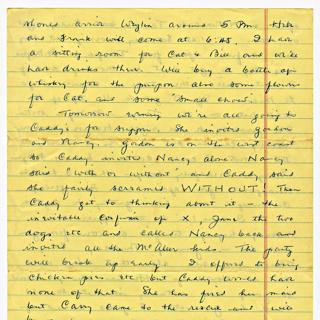 around 5 PM.
and Frank will come at 6:45. I have
a sitting room for Cat & Bill and we'll
have drinks there. Will buy a bottle of
whisky for the purpose also some flowers
for Cat. and some small chow.
Tomorrow evening we're all going to
Caddy's for supper. She invited Gordon
and Nancy. Gordon is on the west coast
so Caddy invited Nancy alone. Nancy
said "with or without" and Caddy said
she fairly screamed WITHOUT! Then
Caddy got to thinking about it - the
inevitable confusion of X, Jane the two
dogs etc and called Nancy back and
invited all the McAlur kids. The party
will break up early. I offered to bring
chicken pies etc but Caddy would have
none of that. She has fired her maid
but Carry came to the rescue and will